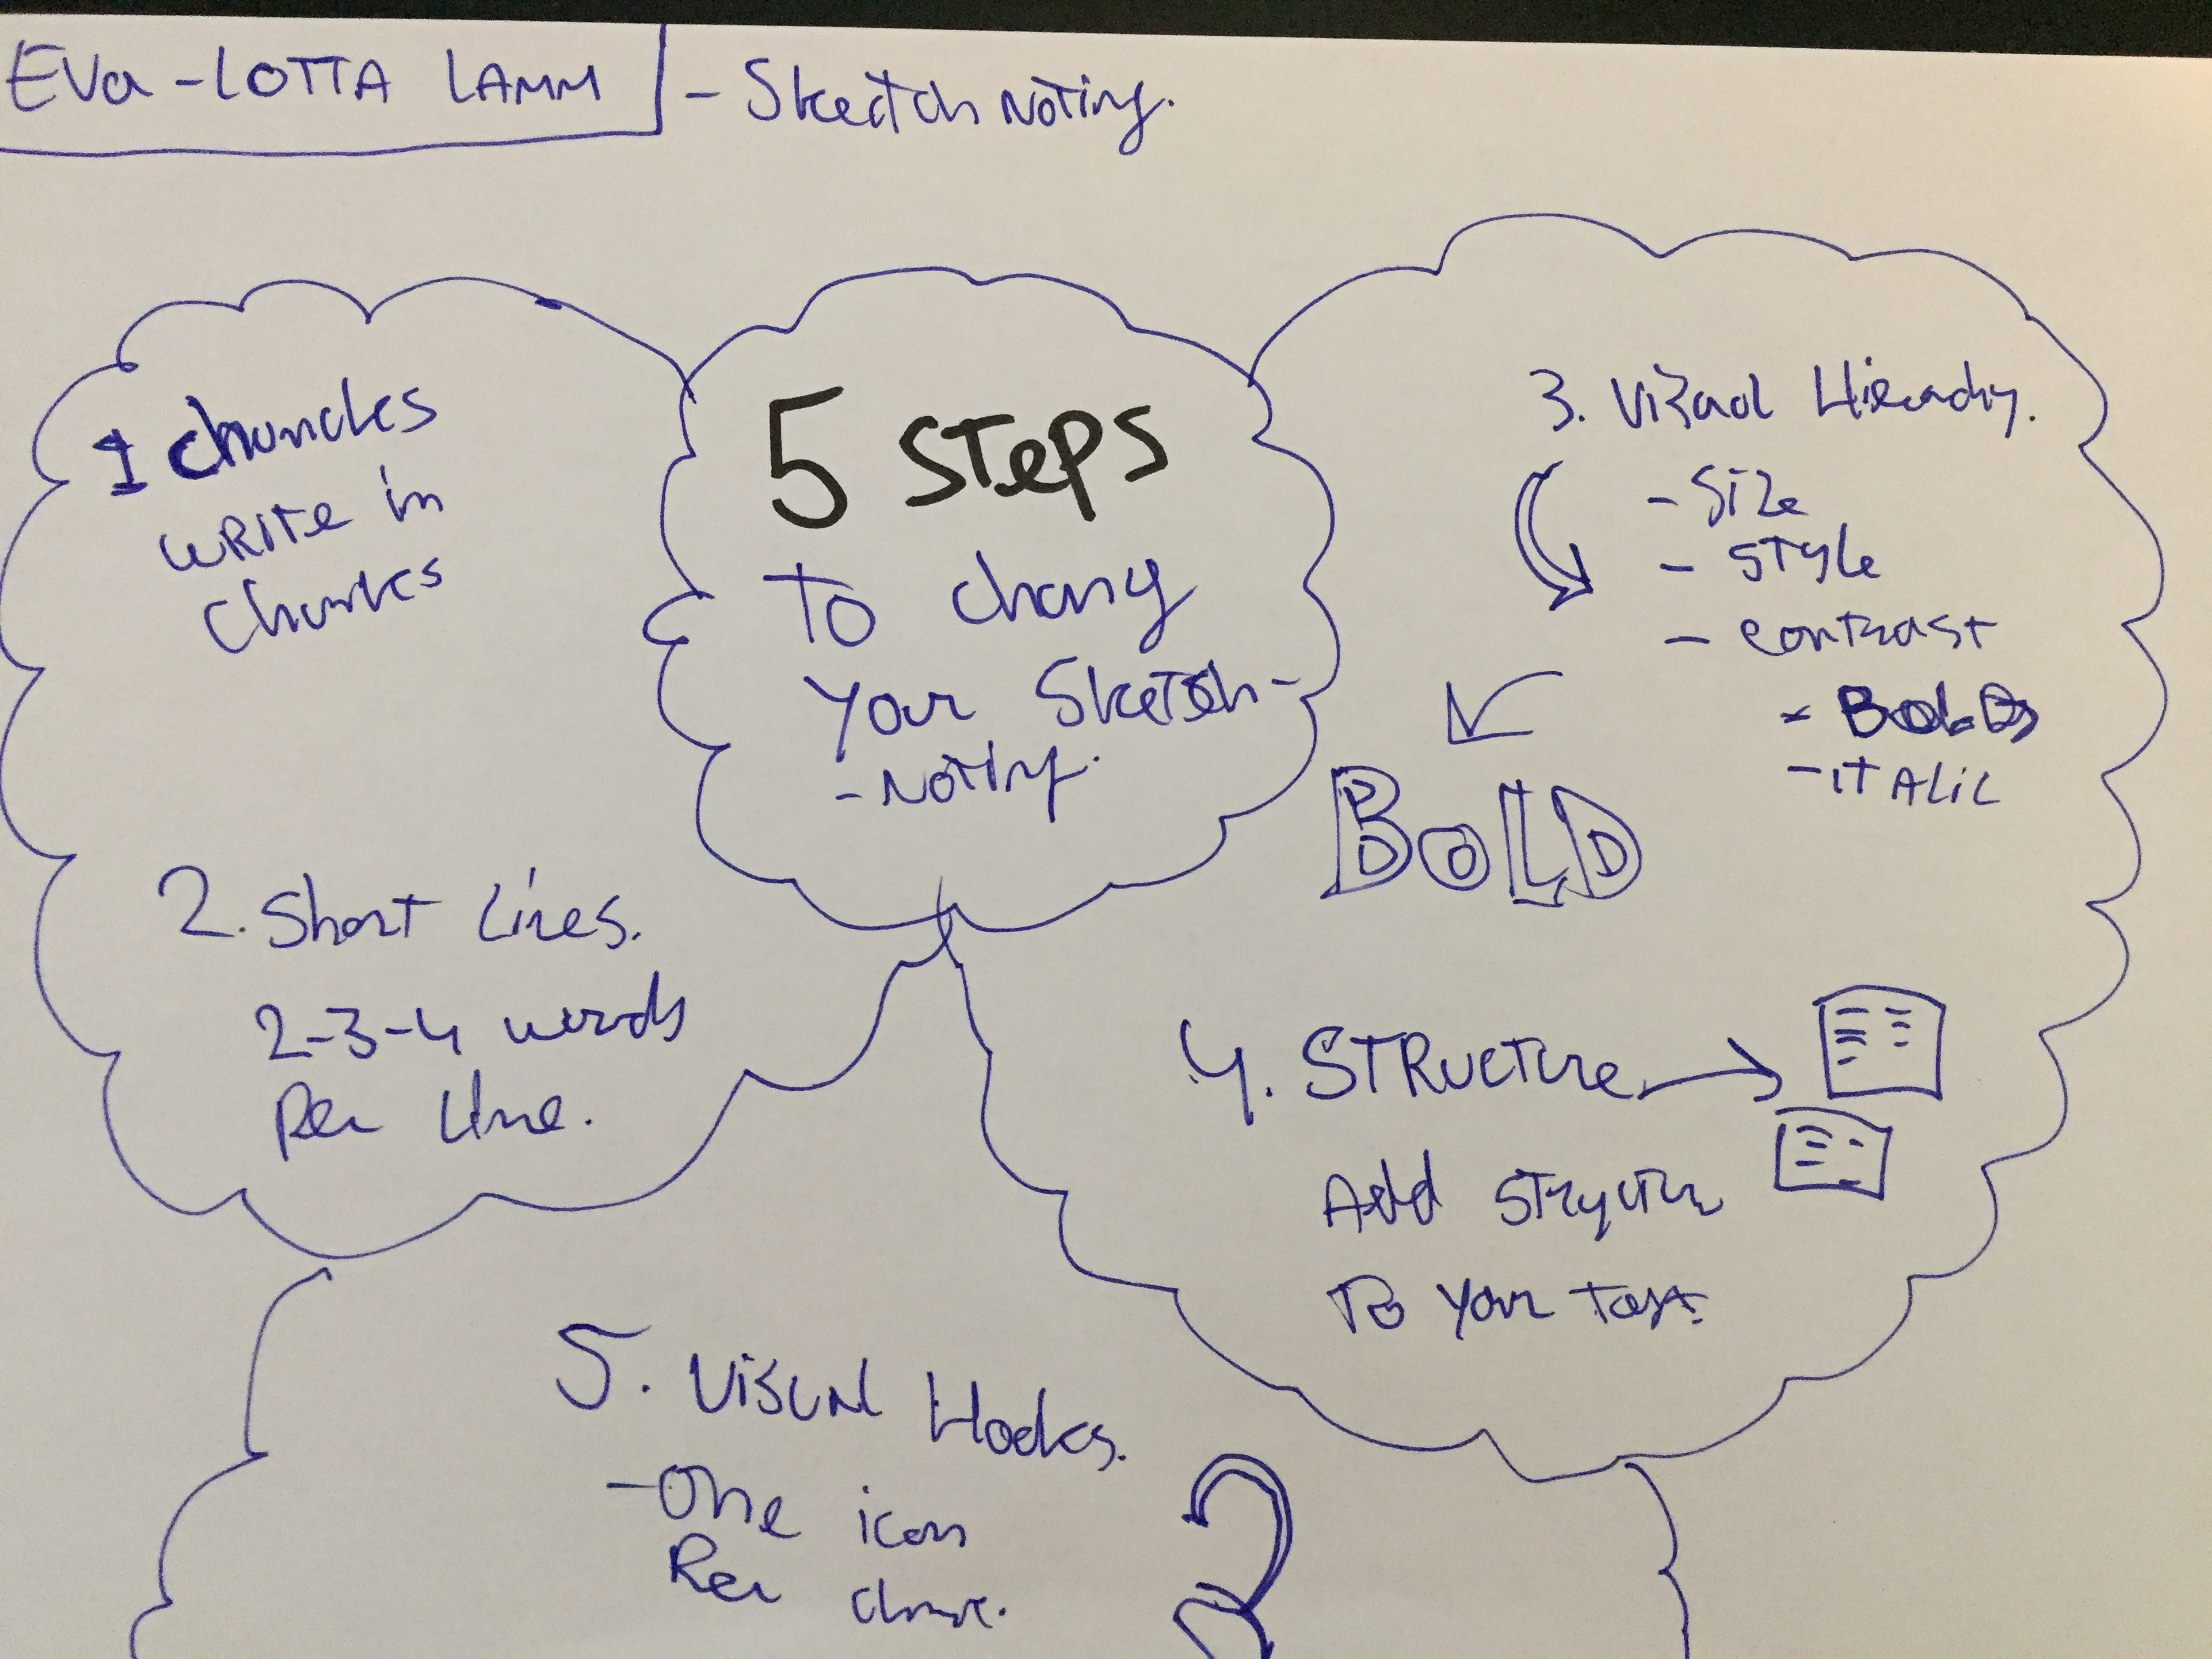 EVa-LOTTA LAMM - Sketch Noting.
5 STePS
To chang
your Sketch-
- Noting.
1 Chuncks
WRITe in
Chunks
2. Short Lines.
2-3-4 words
Per Line.
3. Visual Hierachy.
- Size
- STyle
- contrast
- BOLD
- ITALIC
BOLD
4. STRUCTure
Add Structure
To your text.
5. Visual Hooks.
- One icon
Per